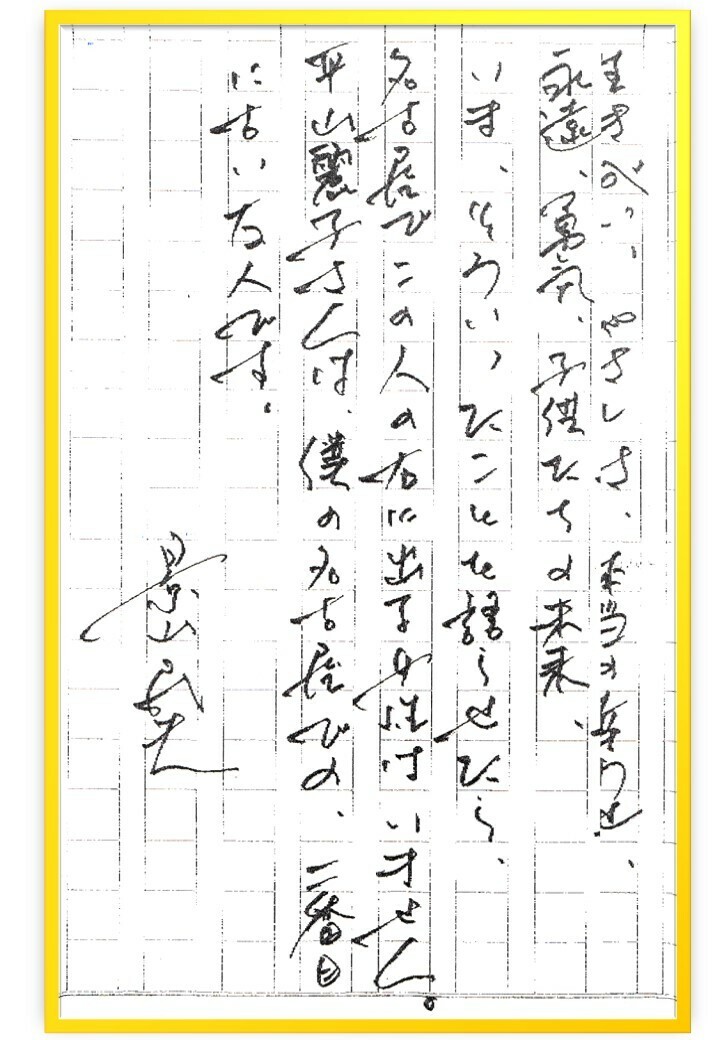 生きがい、やさしさ、本当の幸わせ、
永遠、勇気、子供たちの未来、
いま、そういったことを語らせたら、
名古屋でこの人の右に出る女性はいません。
平山麗子さんは、僕の名古屋での、二番目
に古い友人です。
景山民夫